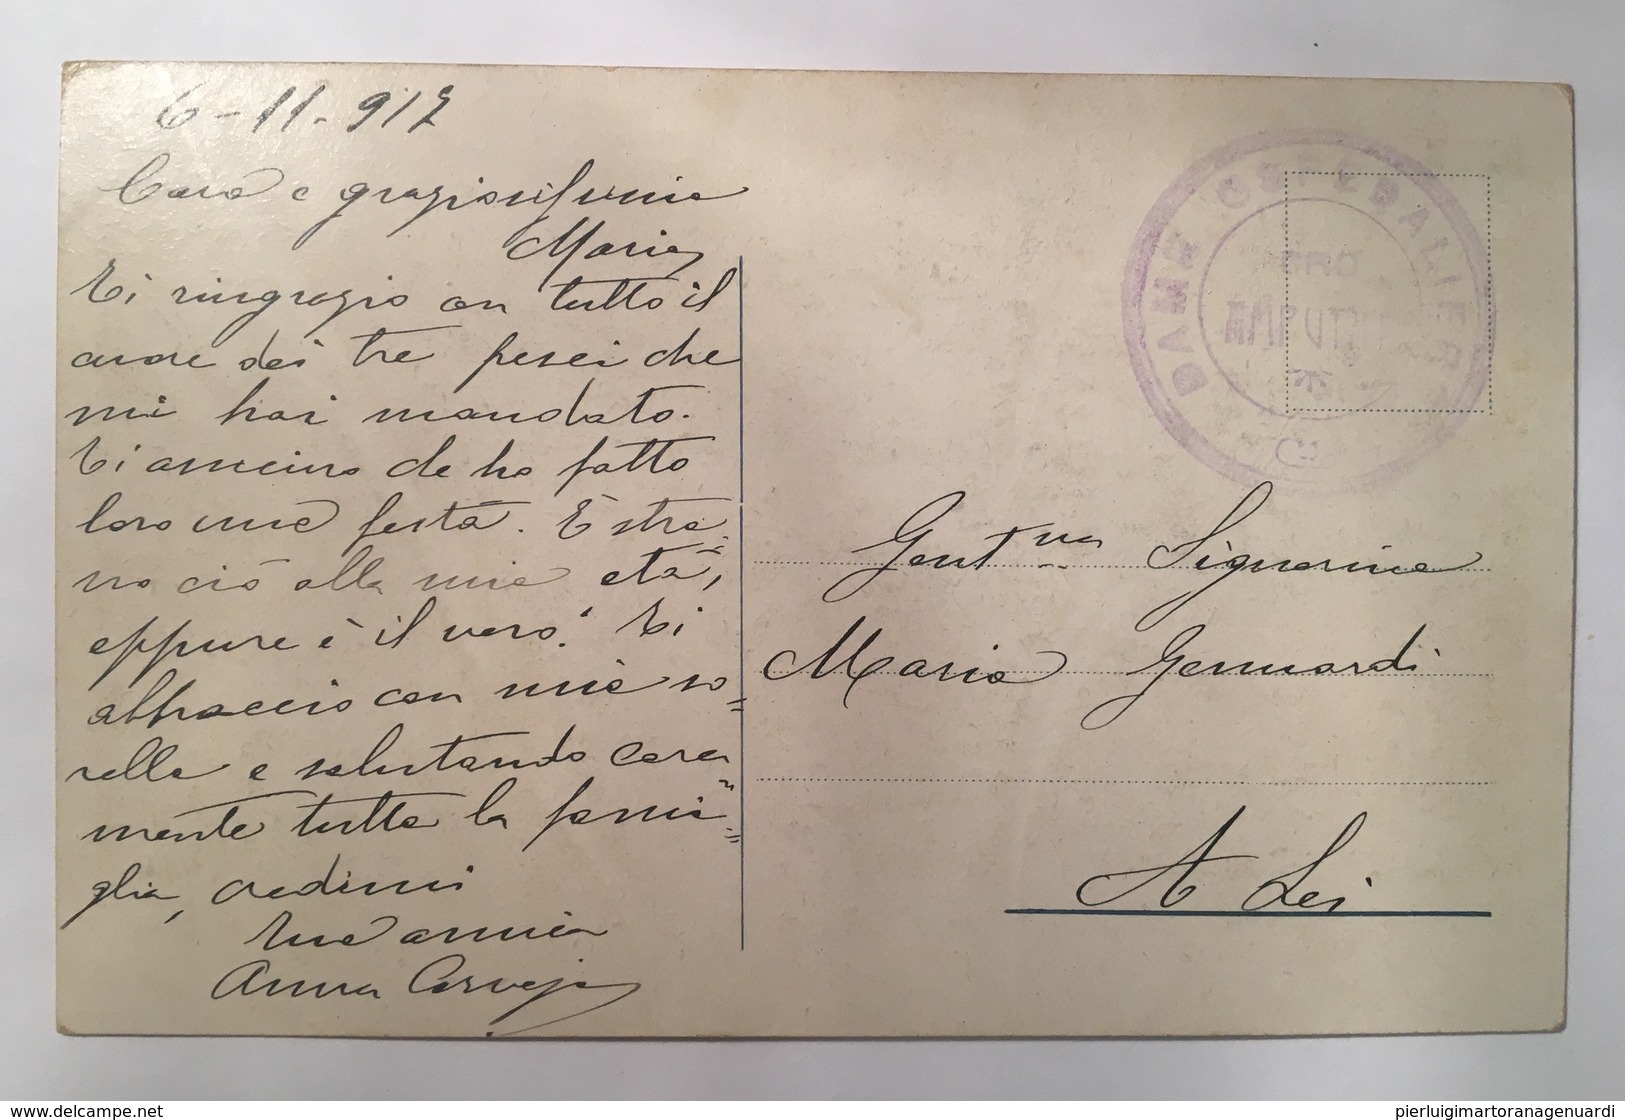 6-11-917
Cara e graziosissima
Maria,
Ti ringrazio con tutto il
cuore dei tre pesci che
mi hai mandato.
Ti assicuro che ho fatto
loro una festa. È stra-
no ciò alla mia età,
eppure è il vero! Ti
abbraccio con mia so=
rella e salutando cara
mente tutta la fami=
glia, credimi
tua amica
Anna
DAME OSPEDALIERE
PRO
Gent.ma Signorina
Maria Genuardi
A Lei
delcampe.net
pierluigimartoranagenuardi